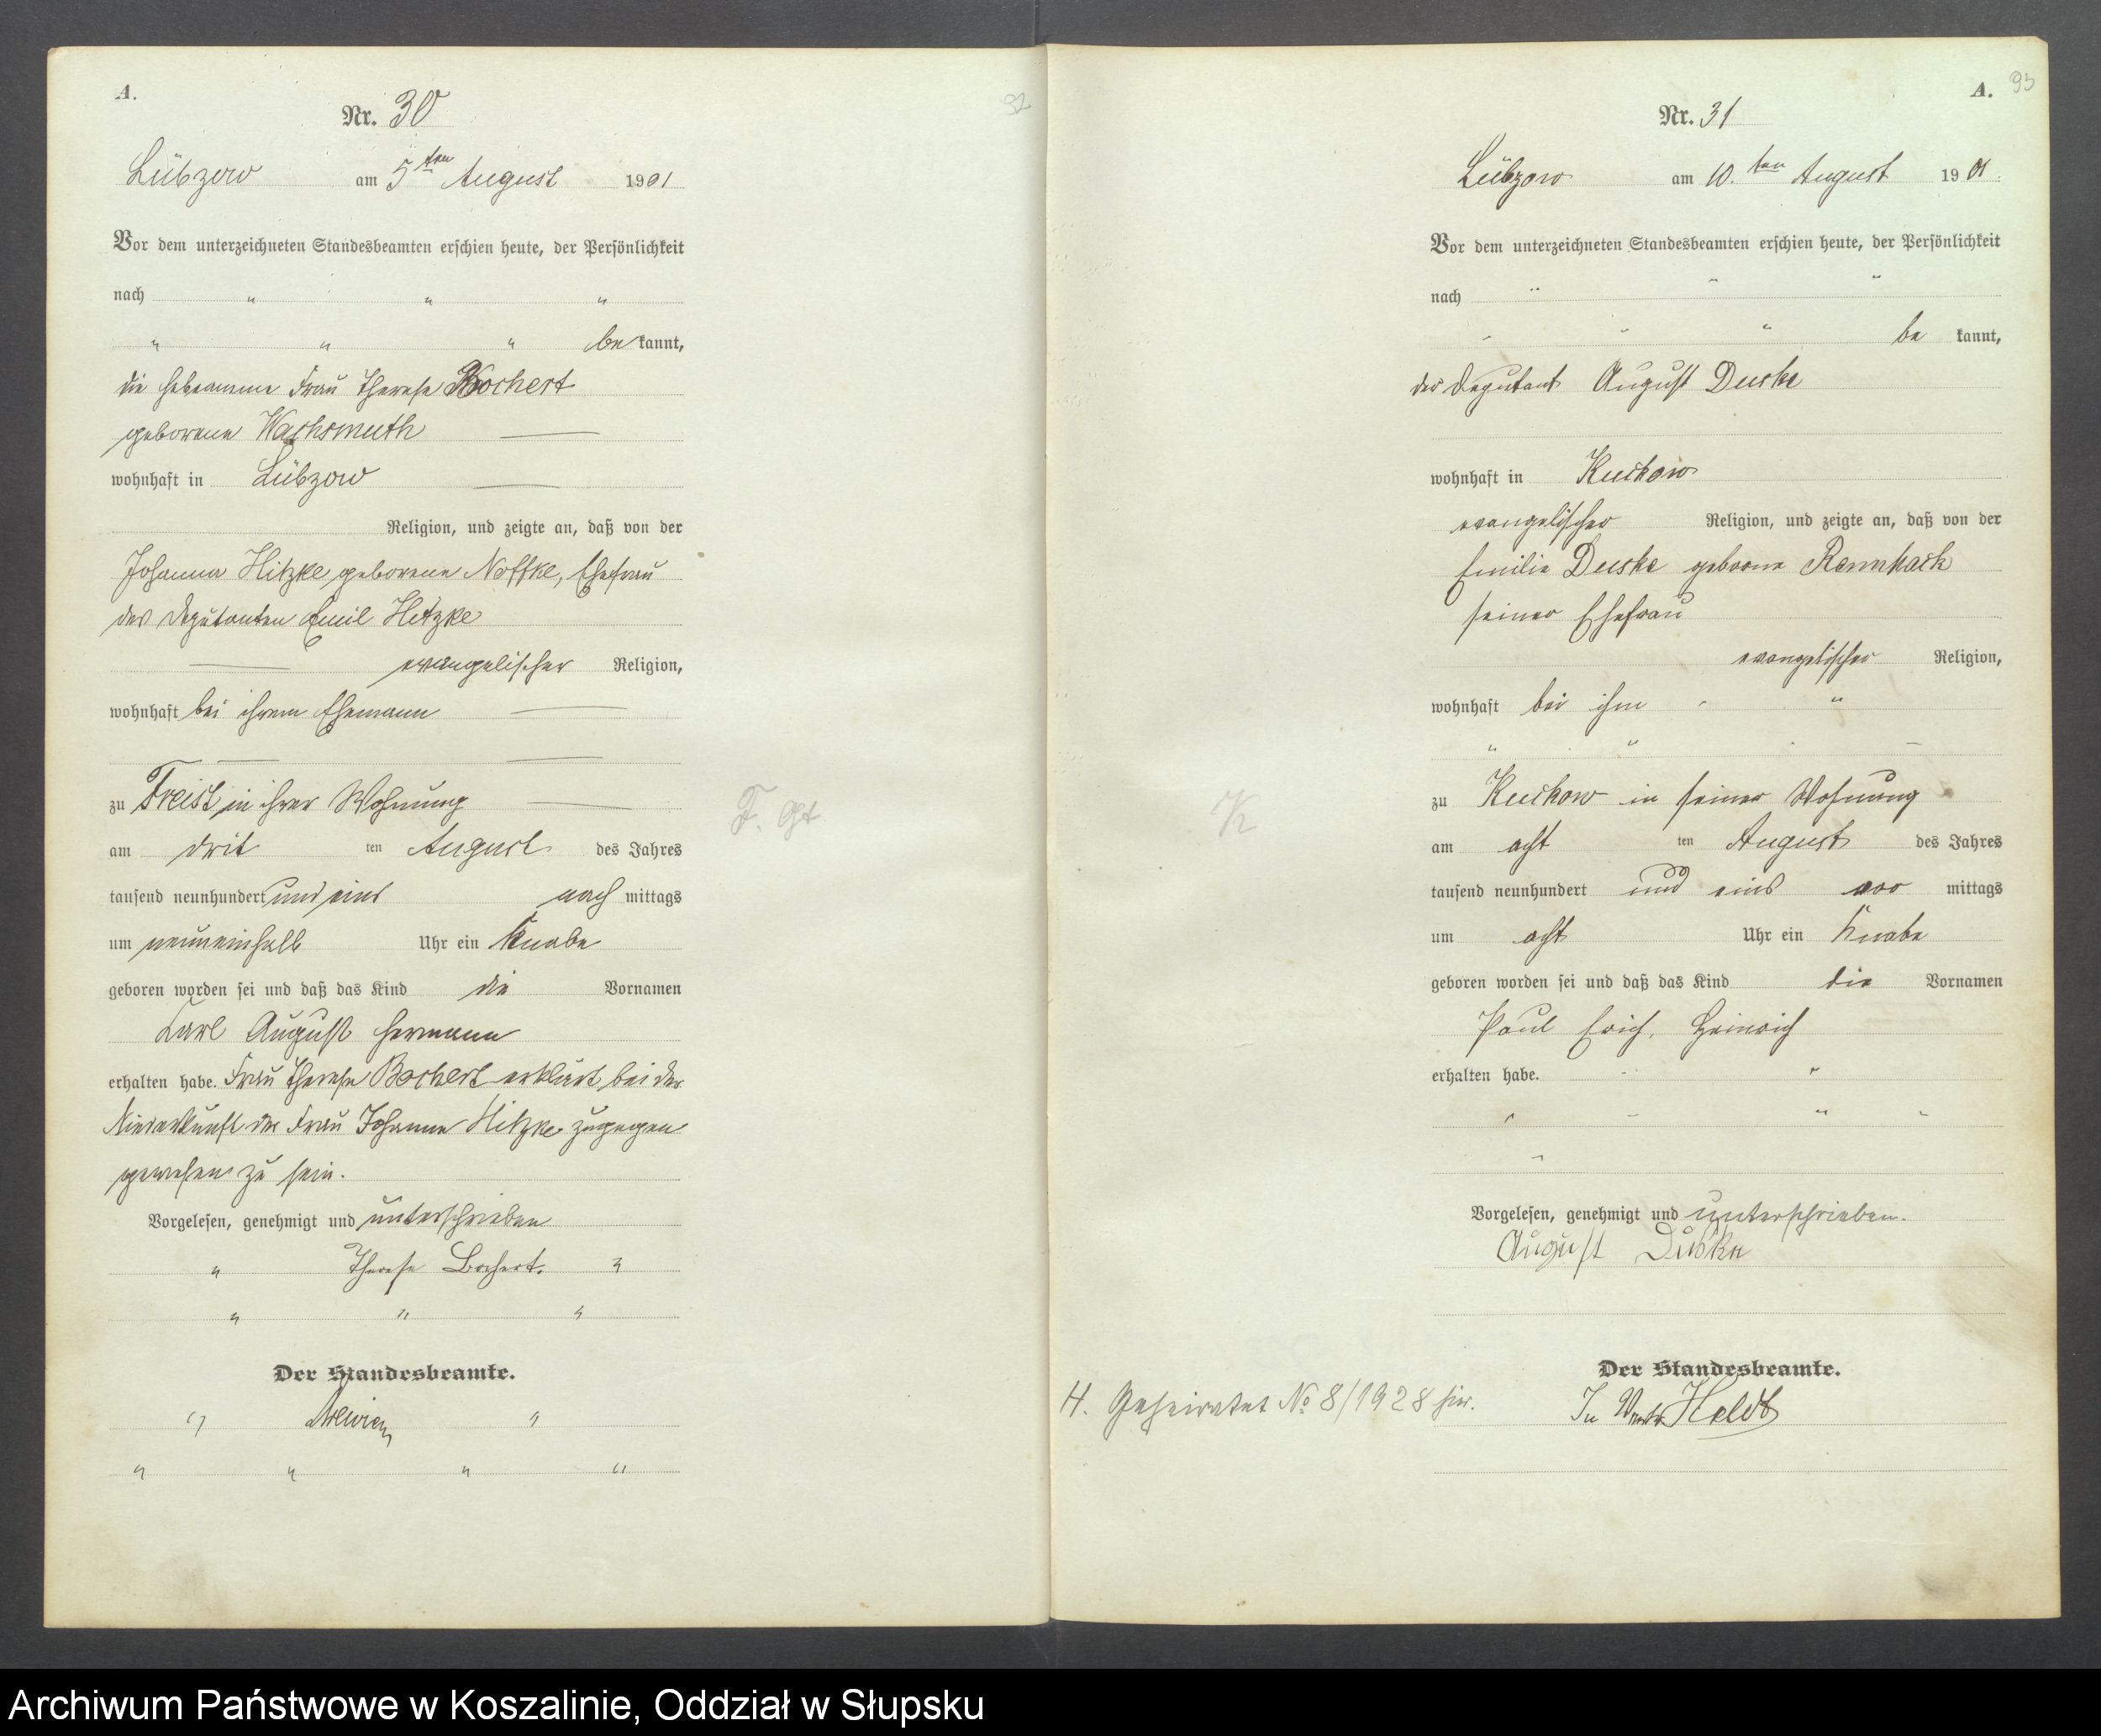 A.
Nr. 30
Lübzow am 5ten August 1901
Vor dem unterzeichneten Standesbeamten erschien heute, der Persönlichkeit
nach " " "
" " " be kannt,
die Hebeamme Frau Therese Bochert
geborene Wachsmuth
wohnhaft in Lübzow
Religion, und zeigte an, daß von der
Johanna Hitzke geborene Noffke, Ehefrau
des Deputanten Emil Hitzke
evangelischer Religion,
wohnhaft bei ihrem Ehemann
zu Freist in ihrer Wohnung
am drit ten August des Jahres
tausend neunhundert und eins nach mittags
um neuneinhalb Uhr ein Knabe
geboren worden sei und daß das Kind die Vornamen
Karl August Hermann
erhalten habe. Frau Therese Bochert erklärt bei der
Niederkunft der Frau Johanna Hitzke zugegen
gewesen zu sein.
Vorgelesen, genehmigt und unterschrieben
" Therese Bochert. "
" " "
Der Standesbeamte.
" "
" " " "
F. Gt.
92
A. 93
Nr. 31
Lübzow am 10.ten August 1901
Vor dem unterzeichneten Standesbeamten erschien heute, der Persönlichkeit
nach " " "
" " " be kannt,
der Deputant August Duske
wohnhaft in Kuckow
evangelischer Religion, und zeigte an, daß von der
Emilie Duske geborne Rennhack
seiner Ehefrau
evangelischer Religion,
wohnhaft bei ihm " "
" "
zu Kuckow in seiner Wohnung
am acht ten August des Jahres
tausend neunhundert und eins vor mittags
um acht Uhr ein Knabe
geboren worden sei und daß das Kind die Vornamen
Paul Erich, Heinrich
erhalten habe. " "
" " " "
"
Vorgelesen, genehmigt und unterschrieben.
August Duske
Der Standesbeamte.
In Vertr. Heldt
K
H. Geheiratet No 8/1928 hier.
Archiwum Państwowe w Koszalinie, Oddział w Słupsku